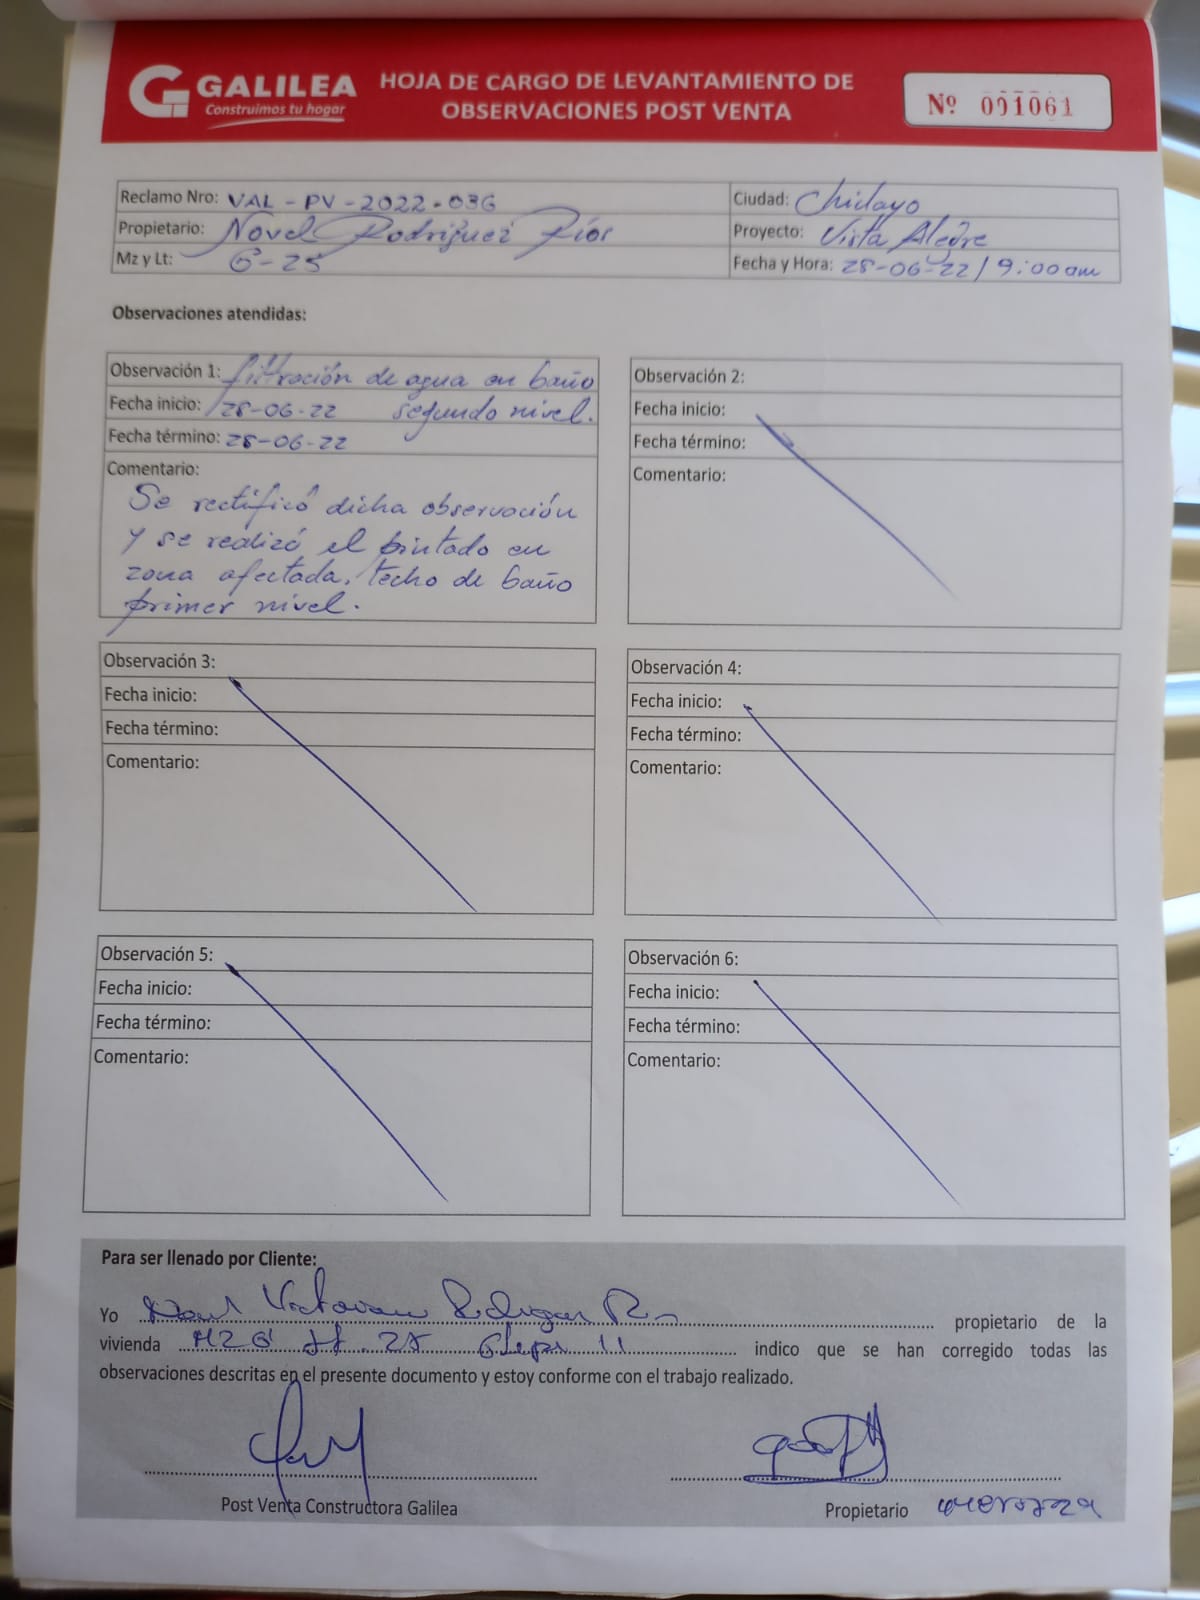 GALILEA
Construimos tu hogar
HOJA DE CARGO DE LEVANTAMIENTO DE
OBSERVACIONES POST VENTA
Nº 001061
Reclamo Nro: VAL-PV-2022-036
Ciudad: Chiclayo
Propietario: Novel Rodriguez Ríos
Proyecto: Vista Alegre
Mz y Lt: G-25
Fecha y Hora: 28-06-22 / 9:00 am
Observaciones atendidas:
Observación 1: filtración de agua en baño
Fecha inicio: 28-06-22 segundo nivel.
Fecha término: 28-06-22
Comentario:
Se rectificó dicha observación
y se realizó el pintado en
zona afectada, techo de baño
primer nivel.
Observación 2:
Fecha inicio:
Fecha término:
Comentario:
Observación 3:
Fecha inicio:
Fecha término:
Comentario:
Observación 4:
Fecha inicio:
Fecha término:
Comentario:
Observación 5:
Fecha inicio:
Fecha término:
Comentario:
Observación 6:
Fecha inicio:
Fecha término:
Comentario:
Para ser llenado por Cliente:
Yo propietario de la
vivienda Mz G Lt. 25 11 indico que se han corregido todas las
observaciones descritas en el presente documento y estoy conforme con el trabajo realizado.
Post Venta Constructora Galilea
Propietario